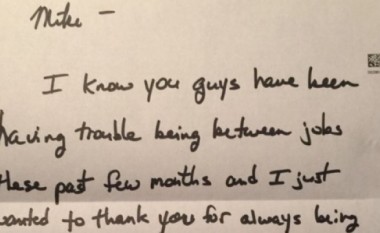 Mike –
I know you guys have been
having trouble being between jobs
these past few months and I just
wanted to thank you for always being